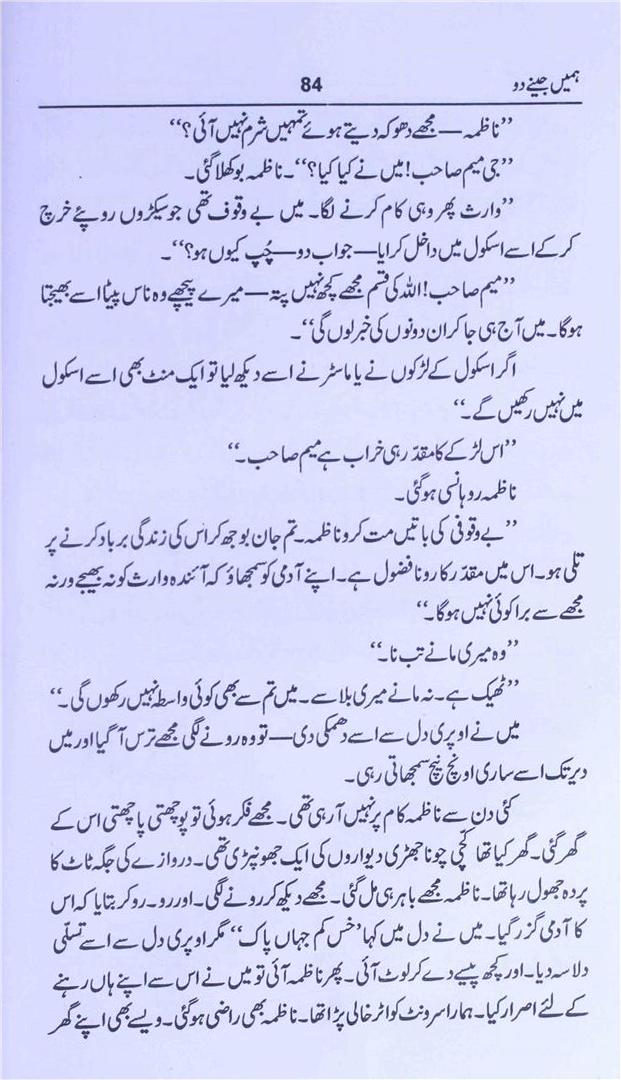 ہمیں جینے دو
84
’’ناظمہ — مجھے دھوکہ دیتے ہوئے تمہیں شرم نہیں آئی؟‘‘
’’جی میم صاحب! میں نے کیا کیا؟‘‘۔ ناظمہ بوکھلا گئی۔
’’وارث پھر وہی کام کرنے لگا۔ میں بے وقوف تھی جو سیکڑوں روپئے خرچ
کر کے اسے اسکول میں داخل کرایا — جواب دو — چُپ کیوں ہو؟‘‘۔
’’میم صاحب! اللہ کی قسم مجھے کچھ نہیں پتہ — میرے پیچھے وہ ناس پیٹا اسے بھیجتا
ہوگا۔ میں آج ہی جا کر ان دونوں کی خبر لوں گی‘‘۔
اگر اسکول کے لڑکوں نے یا ماسٹر نے اسے دیکھ لیا تو ایک منٹ بھی اسے اسکول
میں نہیں رکھیں گے۔‘‘
’’اس لڑکے کا مقدّر ہی خراب ہے میم صاحب۔‘‘
ناظمہ روہانسی ہوگئی۔
’’بے وقوفی کی باتیں مت کرو ناظمہ۔ تم جان بوجھ کر اس کی زندگی برباد کرنے پر
تلی ہو۔ اس میں مقدّر کا رونا فضول ہے۔ اپنے آدمی کو سمجھاؤ کہ آئندہ وارث کو نہ بھیجے ورنہ
مجھے سے برا کوئی نہیں ہوگا۔‘‘
’’وہ میری مانے تب نا۔‘‘
’’ٹھیک ہے۔ نہ مانے میری بلا سے۔ میں تم سے بھی کوئی واسطہ نہیں رکھوں گی۔‘‘
میں نے اوپری دل سے اسے دھمکی دی — تو وہ رونے لگی مجھے ترس آ گیا اور میں
دیر تک اسے ساری اونچ نیچ سمجھاتی رہی۔
کئی دن سے ناظمہ کام پر نہیں آ رہی تھی۔ مجھے فکر ہوئی تو پوچھتی پاچھتی اس کے
گھر گئی۔ گھر کیا تھا کچّی چونا جھڑی دیواروں کی ایک جھونپڑی تھی۔ دروازے کی جگہ ٹاٹ کا
پردہ جھول رہا تھا۔ ناظمہ مجھے باہر ہی مل گئی۔ مجھے دیکھ کر رونے لگی۔ اور رو۔ رو کر بتایا کہ اس
کا آدمی گزر گیا۔ میں نے دل میں کہا ’خس کم جہاں پاک‘‘ مگر اوپری دل سے اسے تسلّی
دلاسہ دیا۔ اور کچھ پیسے دے کر لوٹ آئی۔ پھر ناظمہ آئی تو میں نے اس سے اپنے ہاں رہنے
کے لئے اصرار کیا۔ ہمارا سرونٹ کواٹر خالی پڑا تھا۔ ناظمہ بھی راضی ہوگئی۔ ویسے بھی اپنے گھر